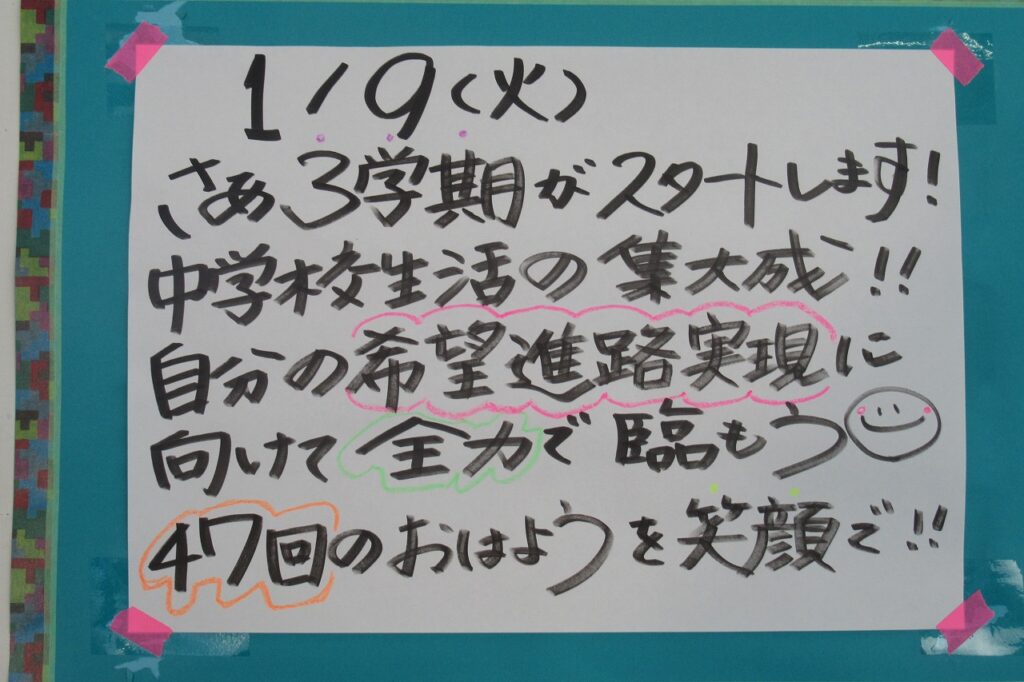 1/9(火)
さあ3学期がスタートします!
中学校生活の集大成!!
自分の希望進路実現に
向けて全力で臨もう
47回のおはようを笑顔で!!